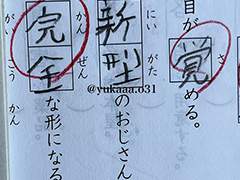 目が覚める。
さ
新型のおじさん
にいがた
完全な形になる
かんぜん
がいこうかん
@yukaaa.o31